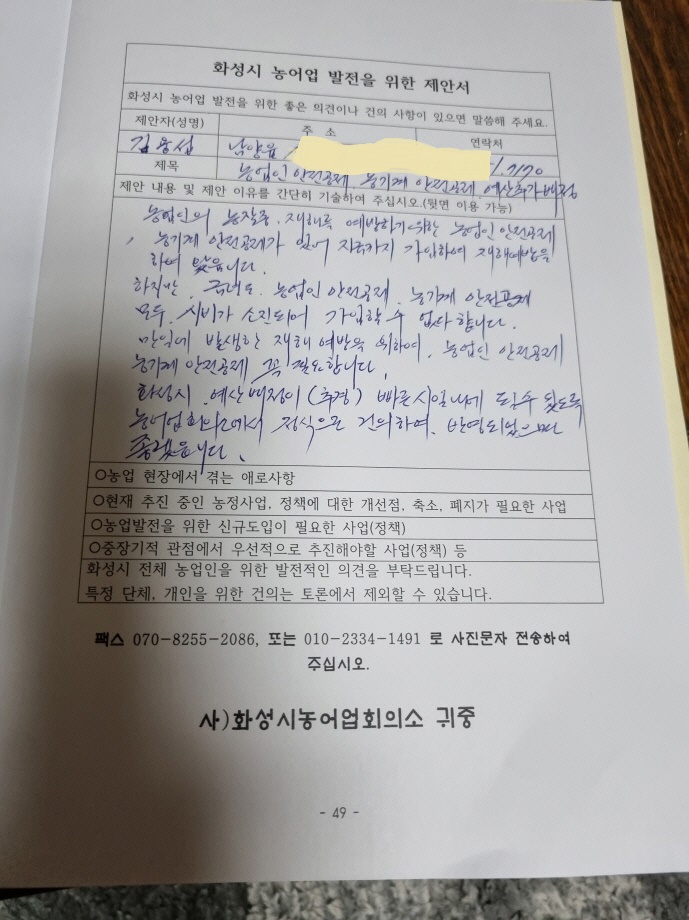 화성시 농어업 발전을 위한 제안서
화성시 농어업 발전을 위한 좋은 의견이나 건의 사항이 있으면 말씀해 주세요.
제안자(성명) 주 소 연락처
김용섭 남양읍 7170
제목 농업인 안전공제, 농기계 안전공제 예산추가배정
제안 내용 및 제안 이유를 간단히 기술하여 주십시오.(뒷면 이용 가능)
농업인의 농작중, 재해를 예방하기 위한 농업인 안전공제
, 농기계 안전공제가 있어 지금까지 가입하여 재해예방을
하여 왔읍니다.
하지만, 농업인 안전공제, 농기계 안전공제
모두, 시비가 소진되어 가입할수 업다 합니다.
만일에 발생한 재해 예방을 위하여, 농업인 안전공제
농기계 안전공제 꼭 필요합니다.
화성시 예산배정이 (추경) 빠른시일내에 될수 있도록
농어업회의소에서 정식으로 건의하여, 반영되었으면
좋겠읍니다.
○농업 현장에서 겪는 애로사항
○현재 추진 중인 농정사업, 정책에 대한 개선점, 축소, 폐지가 필요한 사업
○농업발전을 위한 신규도입이 필요한 사업(정책)
○중장기적 관점에서 우선적으로 추진해야할 사업(정책) 등
화성시 전체 농업인을 위한 발전적인 의견을 부탁드립니다.
특정 단체, 개인을 위한 건의는 토론에서 제외할 수 있습니다.
팩스 070-8255-2086, 또는 010-2334-1491 로 사진문자 전송하여
주십시오.
사)화성시농어업회의소 귀중
- 49 -